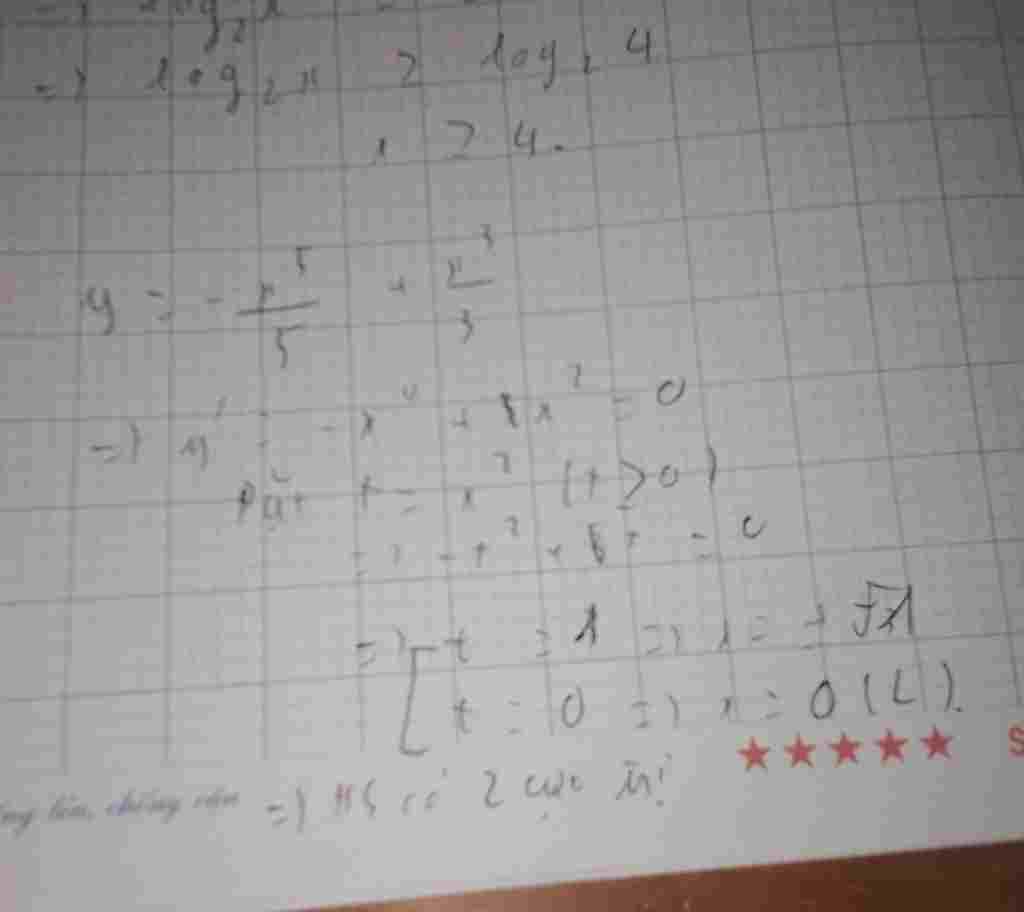 => log₂x ≥ log₂4
x ≥ 4.
y = -x⁵/5 + x³/3
=> y' = -x⁴ + 1x² = 0
Đặt t = x² (t > 0)
=> -t² + 1t = 0
=> [ t = 1 => x = ± √1
[ t = 0 => x = 0 (L).
=> HS có 2 cực trị